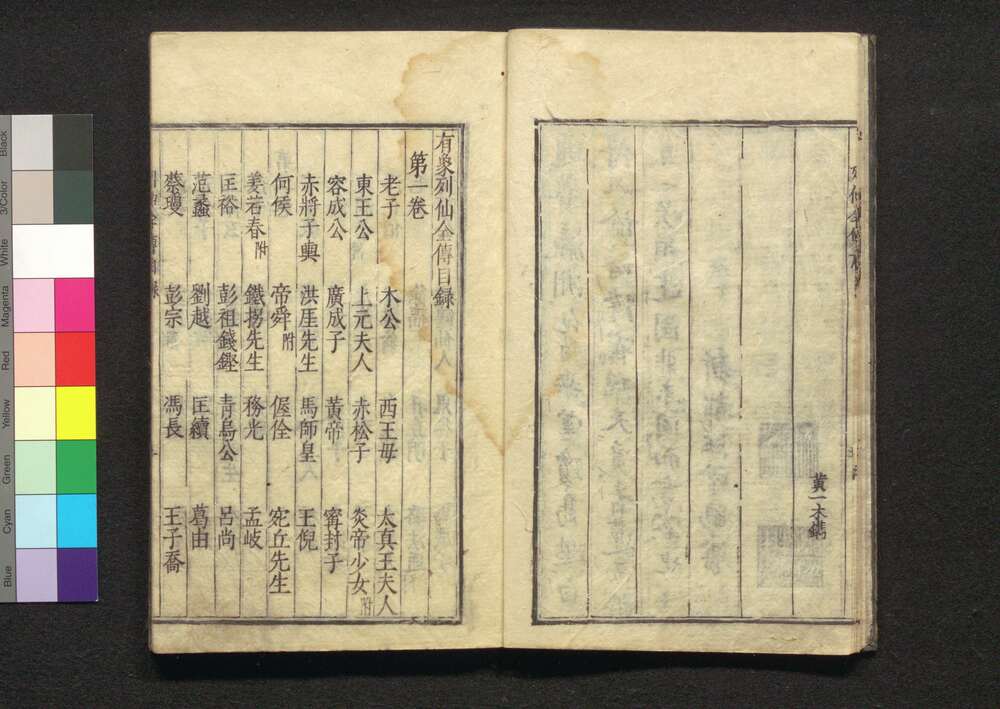 黃一木鐫
有象列仙全傳目錄
第一卷
老子 木公 西王母 太真王夫人
東王公 上元夫人 赤松子 炎帝少女附
容成公 廣成子 黃帝 甯封子
赤將子輿 洪厓先生 馬師皇 王倪
何侯 帝舜附 偓佺 宛丘先生
姜若春附 鐵拐先生 務光 孟岐
匡裕 彭祖錢鏗 青烏公 呂尚
范蠡 劉越 匡續 葛由
蔡瓊 彭宗 馮長 王子喬
Black
3/Color
White
Magenta
Red
Yellow
Green
Cyan
Blue